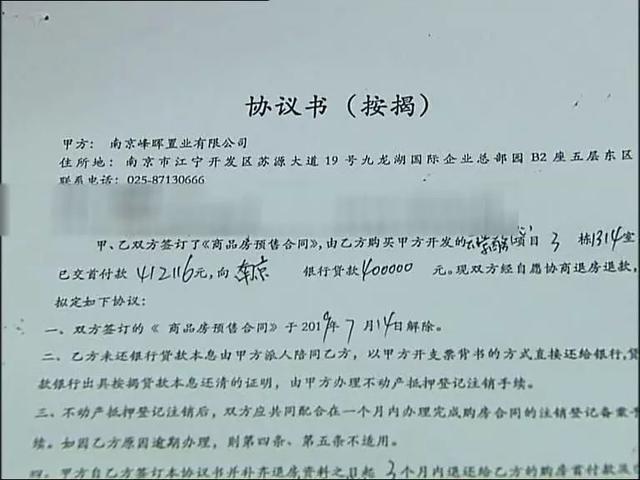 协议书（按揭）
甲方： 南京峰晖置业有限公司
住所地： 南京市江宁开发区苏源大道19号九龙湖国际企业总部园B2座五层东区
联系电话：025-87130666
甲、乙双方签订了《商品房预售合同》，由乙方购买甲方开发的 项目 3 栋1314室
已交首付款 412116元，向 南京 银行贷款400000 元。现双方经自愿协商退房退款，
拟定如下协议：
一、双方签订的《 商品房预售合同》于2019年7月14日解除。
二、乙方未还银行贷款本息由甲方派人陪同乙方，以甲方开支票背书的方式直接还给银行，贷
款银行出具按揭贷款本息还清的证明，由甲方办理不动产抵押登记注销手续。
三、不动产抵押登记注销后，双方应共同配合在一个月内办理完成购房合同的注销登记备案手
续。如因乙方原因逾期办理，则第四条、第五条不适用。
四、甲方自乙方签订本协议书并补齐退房资料之日起 3 个月内退还给乙方的购房首付款及